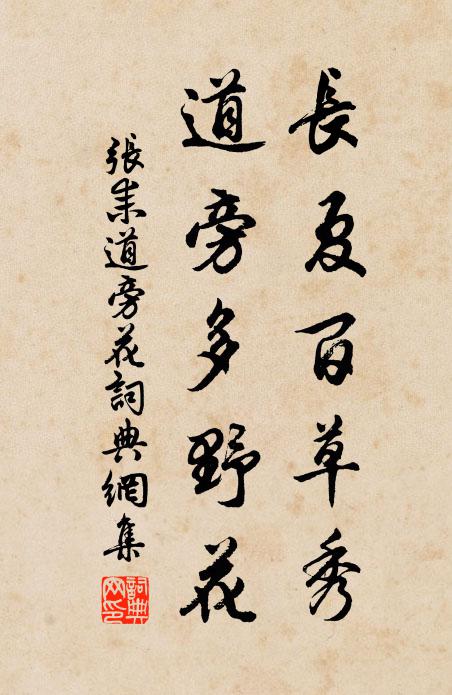 長夏百草秀
道旁多野花
張耒道旁花詞典網集
詞典
网印